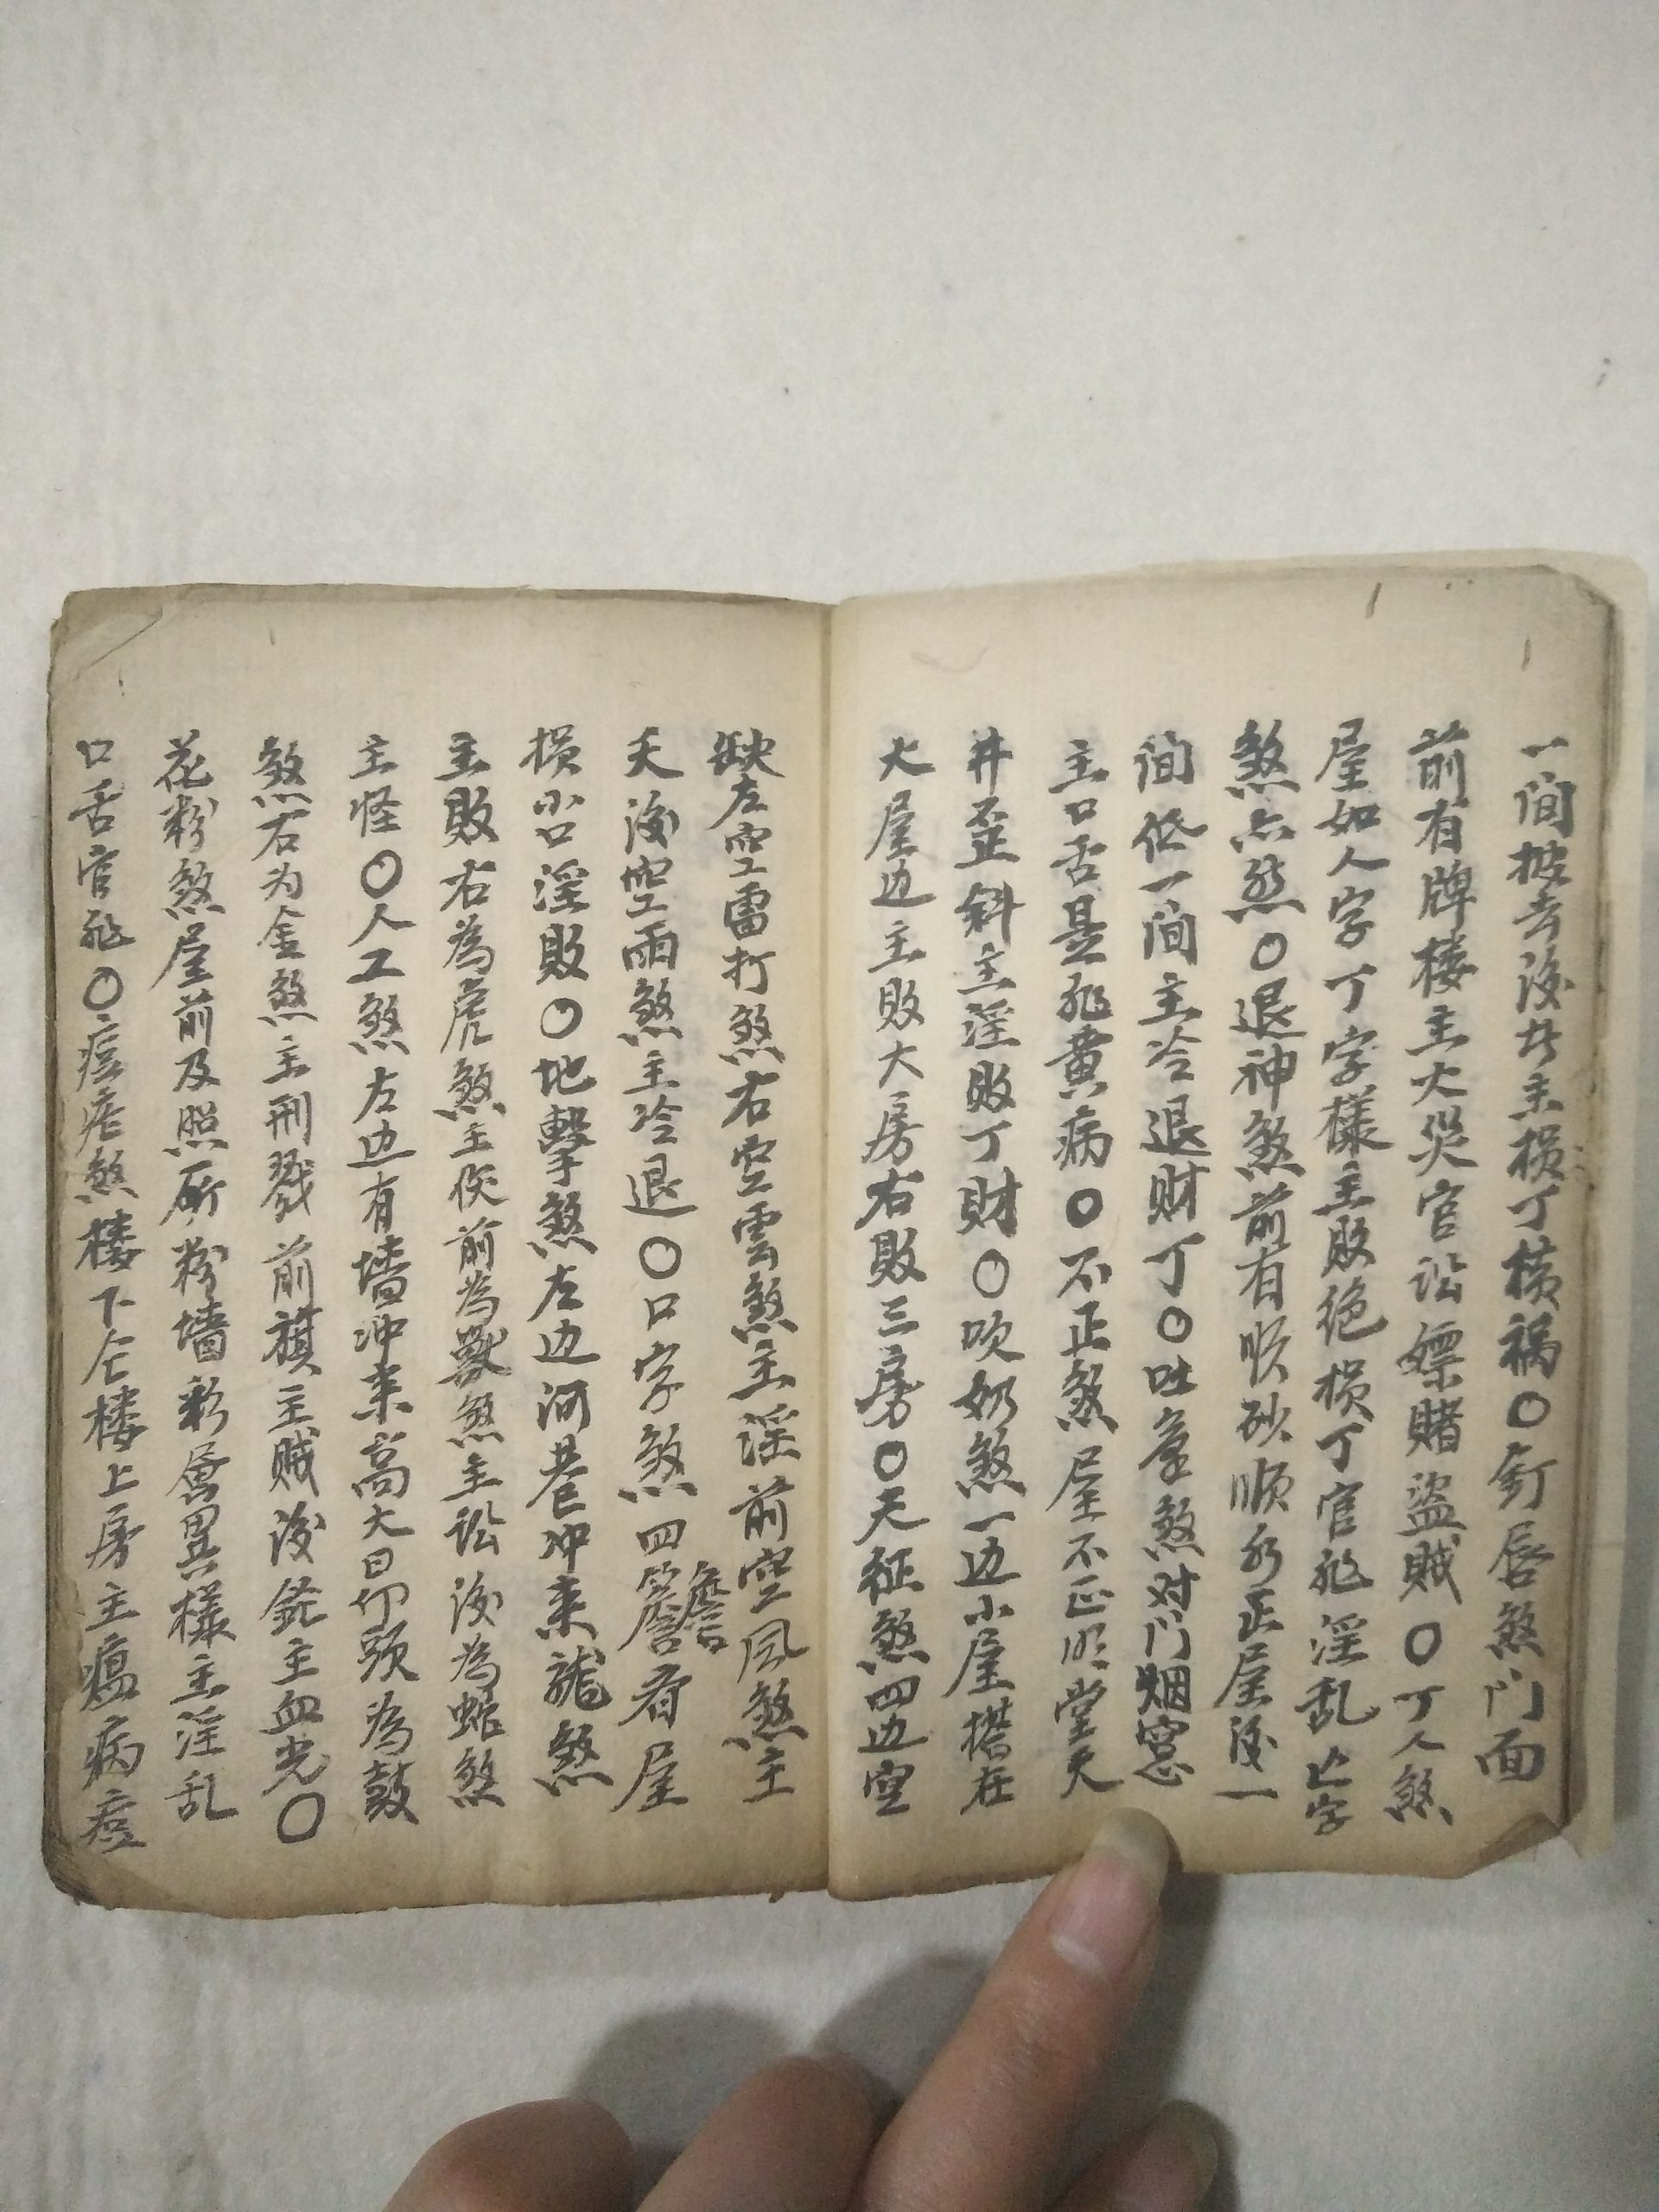 一间披去後者主损丁横祸〇釘唇煞门面
前有牌楼主火災官讼嫖賭盗贼〇丁人煞
屋如人字丁字樣主敗绝损丁官非淫乱亡字
煞亦然〇退神煞前有順砂順水正屋後一
间低一间主冷退财丁〇吐煞对门烟窓
主口舌是非黄病〇不正煞屋不正明堂天
井歪斜主淫败丁財〇吹奶煞一边小屋搭在
大屋边主败大房右敗三房〇天征煞四边空
缺左空雷打煞右空雲煞主淫前空风煞主
夭後空雨煞主冷退〇口字煞四簷看屋
簷
损小口淫敗〇地擊煞左边河巷冲来龍煞
主敗右為虎煞主伤前為獸煞主讼後為蛇煞
主怪〇人工煞左边有墙冲来高大曰仰頭為鼓
煞右为金煞主刑戮前旗主贼後銃主血光〇
花粉煞屋前及照所粉墙彩層異樣主淫乱
口舌官非〇痘疟煞楼下仓楼上房主瘟病痘